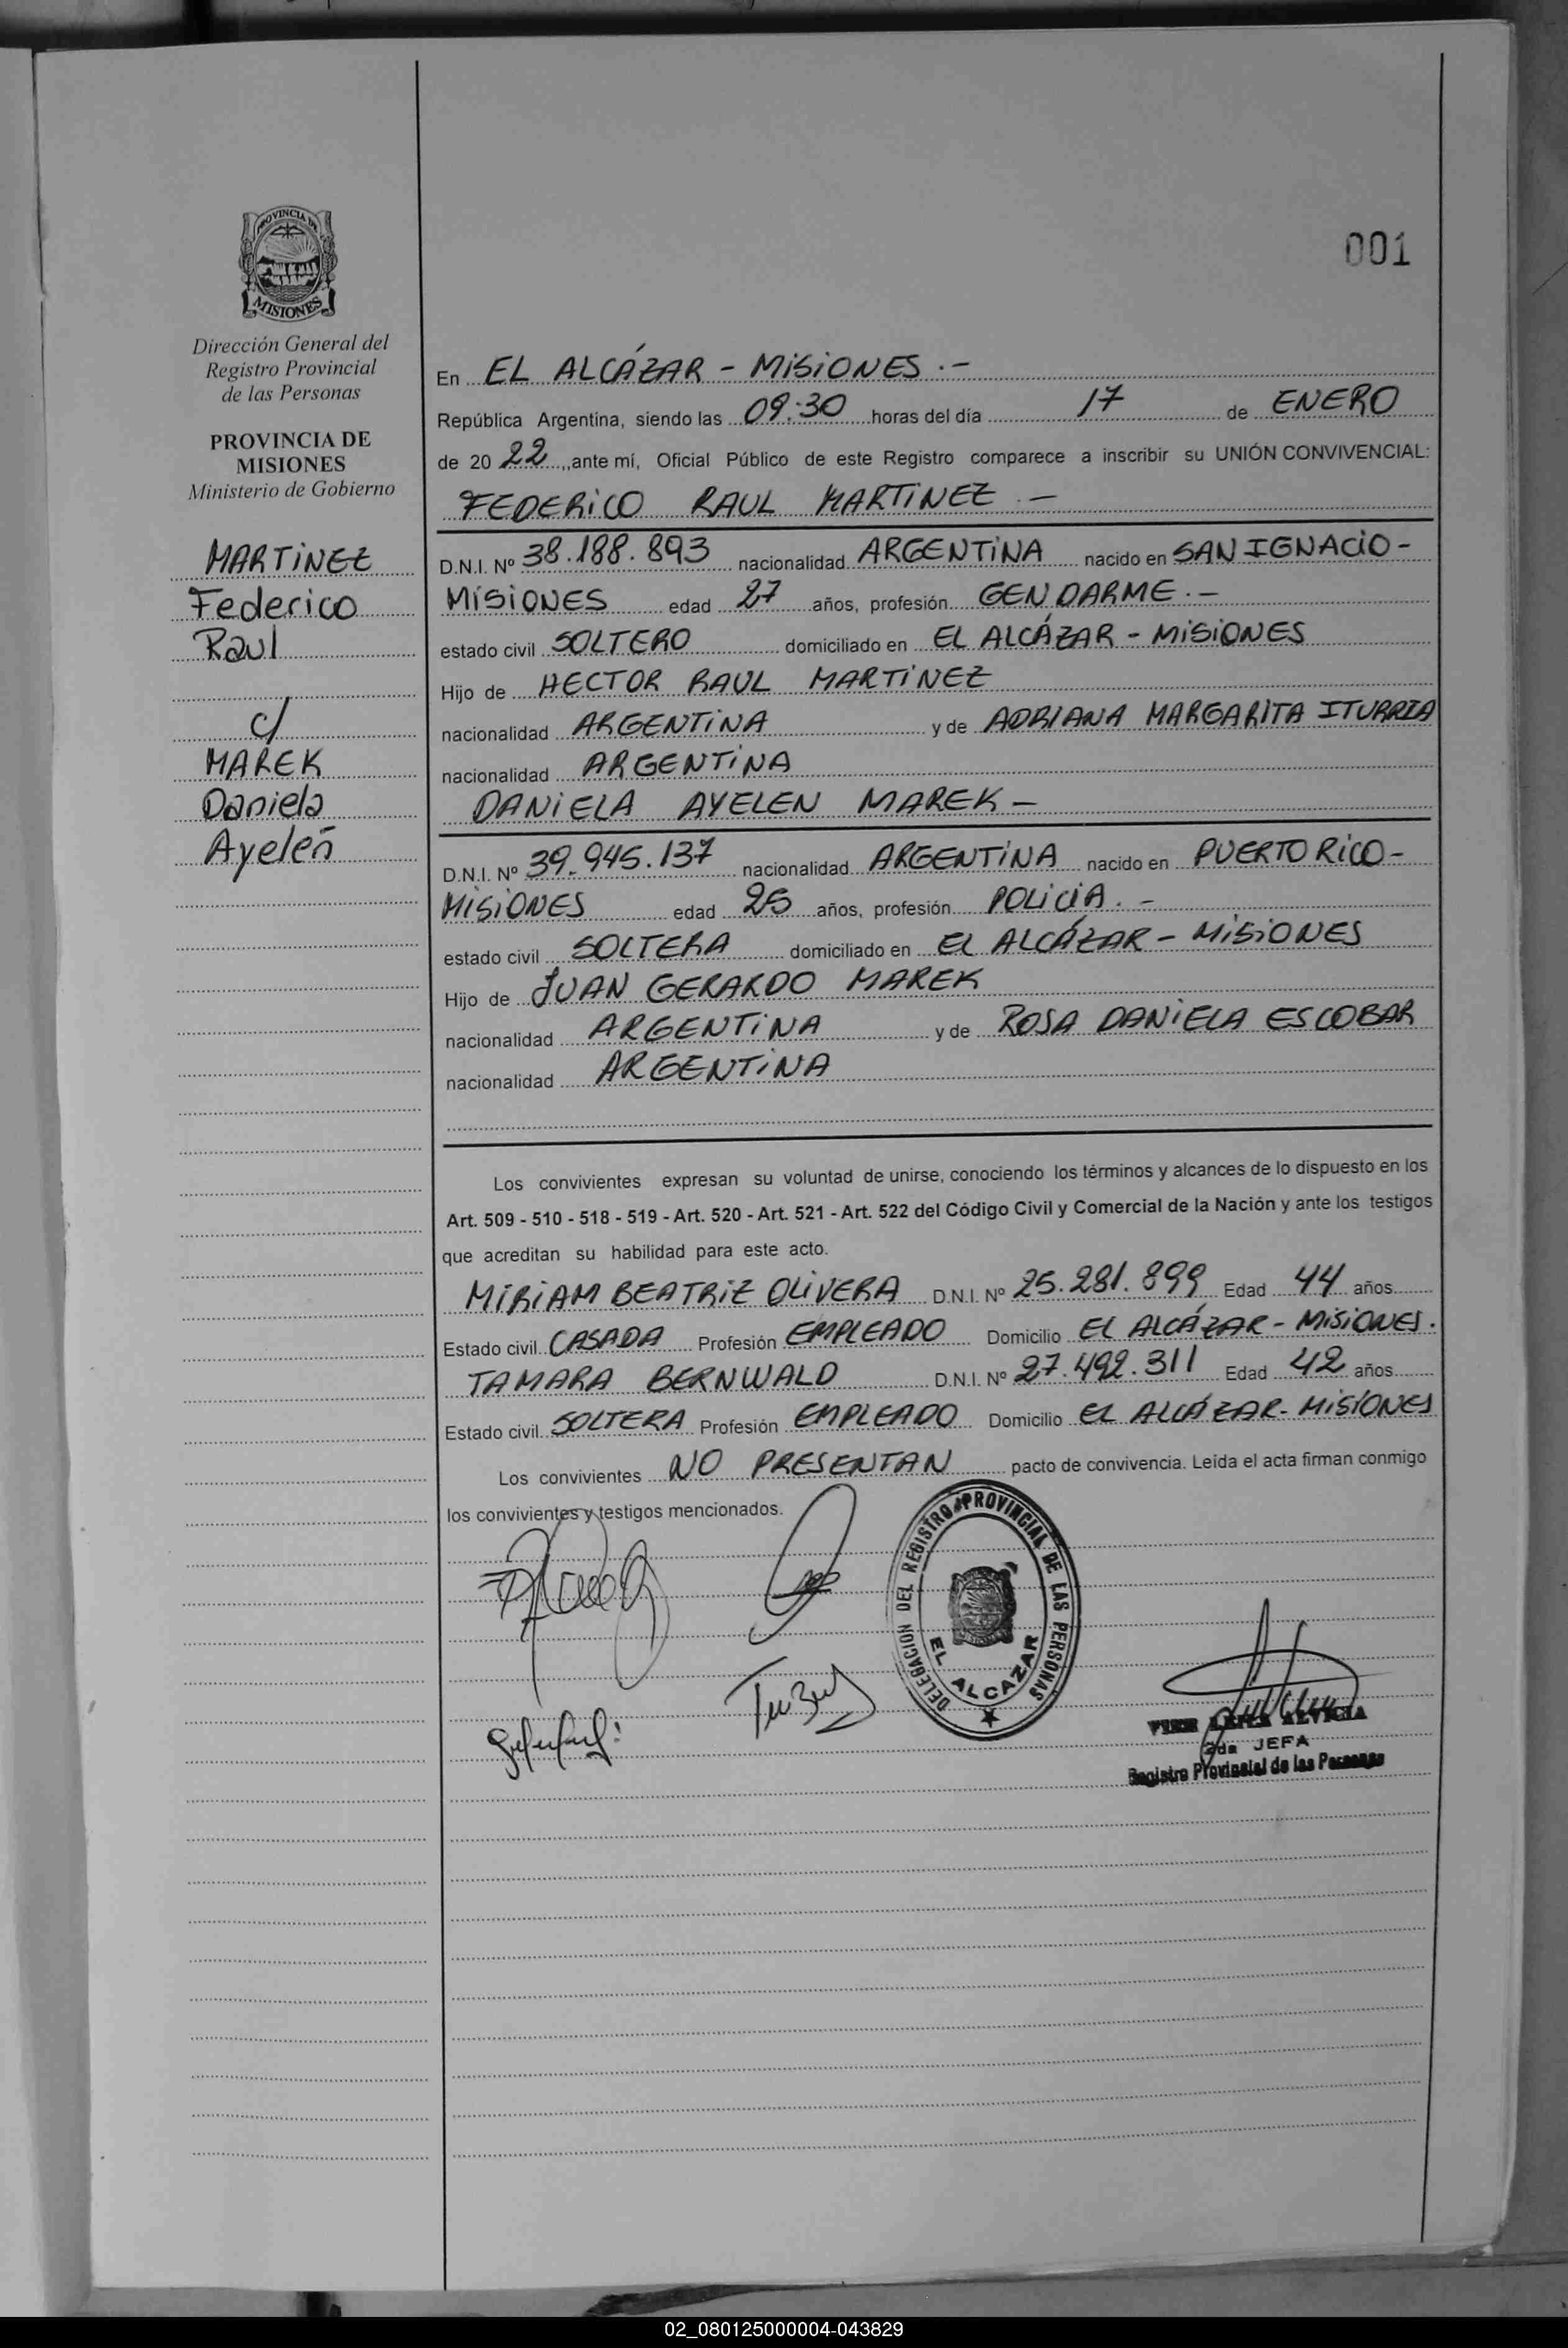 PROVINCIA DE
MISIONES
Dirección General del
Registro Provincial
de las Personas
PROVINCIA DE
MISIONES
Ministerio de Gobierno
MARTINEZ
Federico
Raul
c/
MAREK
Daniela
Ayelén
001
En EL ALCÁZAR - MISIONES.-
República Argentina, siendo las 09:30 horas del día 17 de ENERO
de 2022, ante mí, Oficial Público de este Registro comparece a inscribir su UNIÓN CONVIVENCIAL:
FEDERICO RAUL MARTINEZ.-
D.N.I. Nº 38.188.893 nacionalidad ARGENTINA nacido en SAN IGNACIO -
MISIONES edad 27 años, profesión GENDARME.-
estado civil SOLTERO domiciliado en EL ALCÁZAR - MISIONES
Hijo de HECTOR RAUL MARTINEZ
nacionalidad ARGENTINA y de ADRIANA MARGARITA ITURRIA
nacionalidad ARGENTINA
DANIELA AYELEN MAREK -
D.N.I. Nº 39.945.137 nacionalidad ARGENTINA nacido en PUERTO RICO -
MISIONES edad 25 años, profesión POLICIA.-
estado civil SOLTERA domiciliado en EL ALCÁZAR - MISIONES
Hijo de JUAN GERARDO MAREK
nacionalidad ARGENTINA y de ROSA DANIELA ESCOBAR
nacionalidad ARGENTINA
Los convivientes expresan su voluntad de unirse, conociendo los términos y alcances de lo dispuesto en los
Art. 509 - 510 - 518 - 519 - Art. 520 - Art. 521 - Art. 522 del Código Civil y Comercial de la Nación y ante los testigos
que acreditan su habilidad para este acto.
MIRIAM BEATRIZ OLIVERA D.N.I. Nº 25.281.899 Edad 44 años
Estado civil CASADA Profesión EMPLEADO Domicilio EL ALCÁZAR - MISIONES.
TAMARA BERNWALD D.N.I. Nº 27.492.311 Edad 42 años
Estado civil SOLTERA Profesión EMPLEADO Domicilio EL ALCÁZAR - MISIONES
Los convivientes NO PRESENTAN pacto de convivencia. Leída el acta firman conmigo
los convivientes y testigos mencionados.
DELEGACION DEL REGISTRO PROVINCIAL DE LAS PERSONAS
EL ALCAZAR
2da JEFA
Registro Provincial de las Personas
02_080125000004-043829